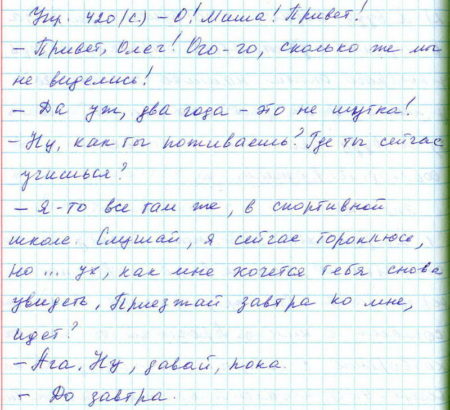 Упр. 420 (с.) – О! Миша! Привет!
– Привет, Олег! Ого-го, сколько же мы
не виделись!
– Да уж, два года – это не шутка!
– Ну, как ты поживаешь? Где ты сейчас
учишься?
– Я-то все там же, в спортивной
школе. Слушай, я сейчас тороплюсь,
но ... ух, как мне хочется тебя снова
увидеть, Приезжай завтра ко мне,
идет?
– Ага. Ну, давай, пока.
– До завтра.